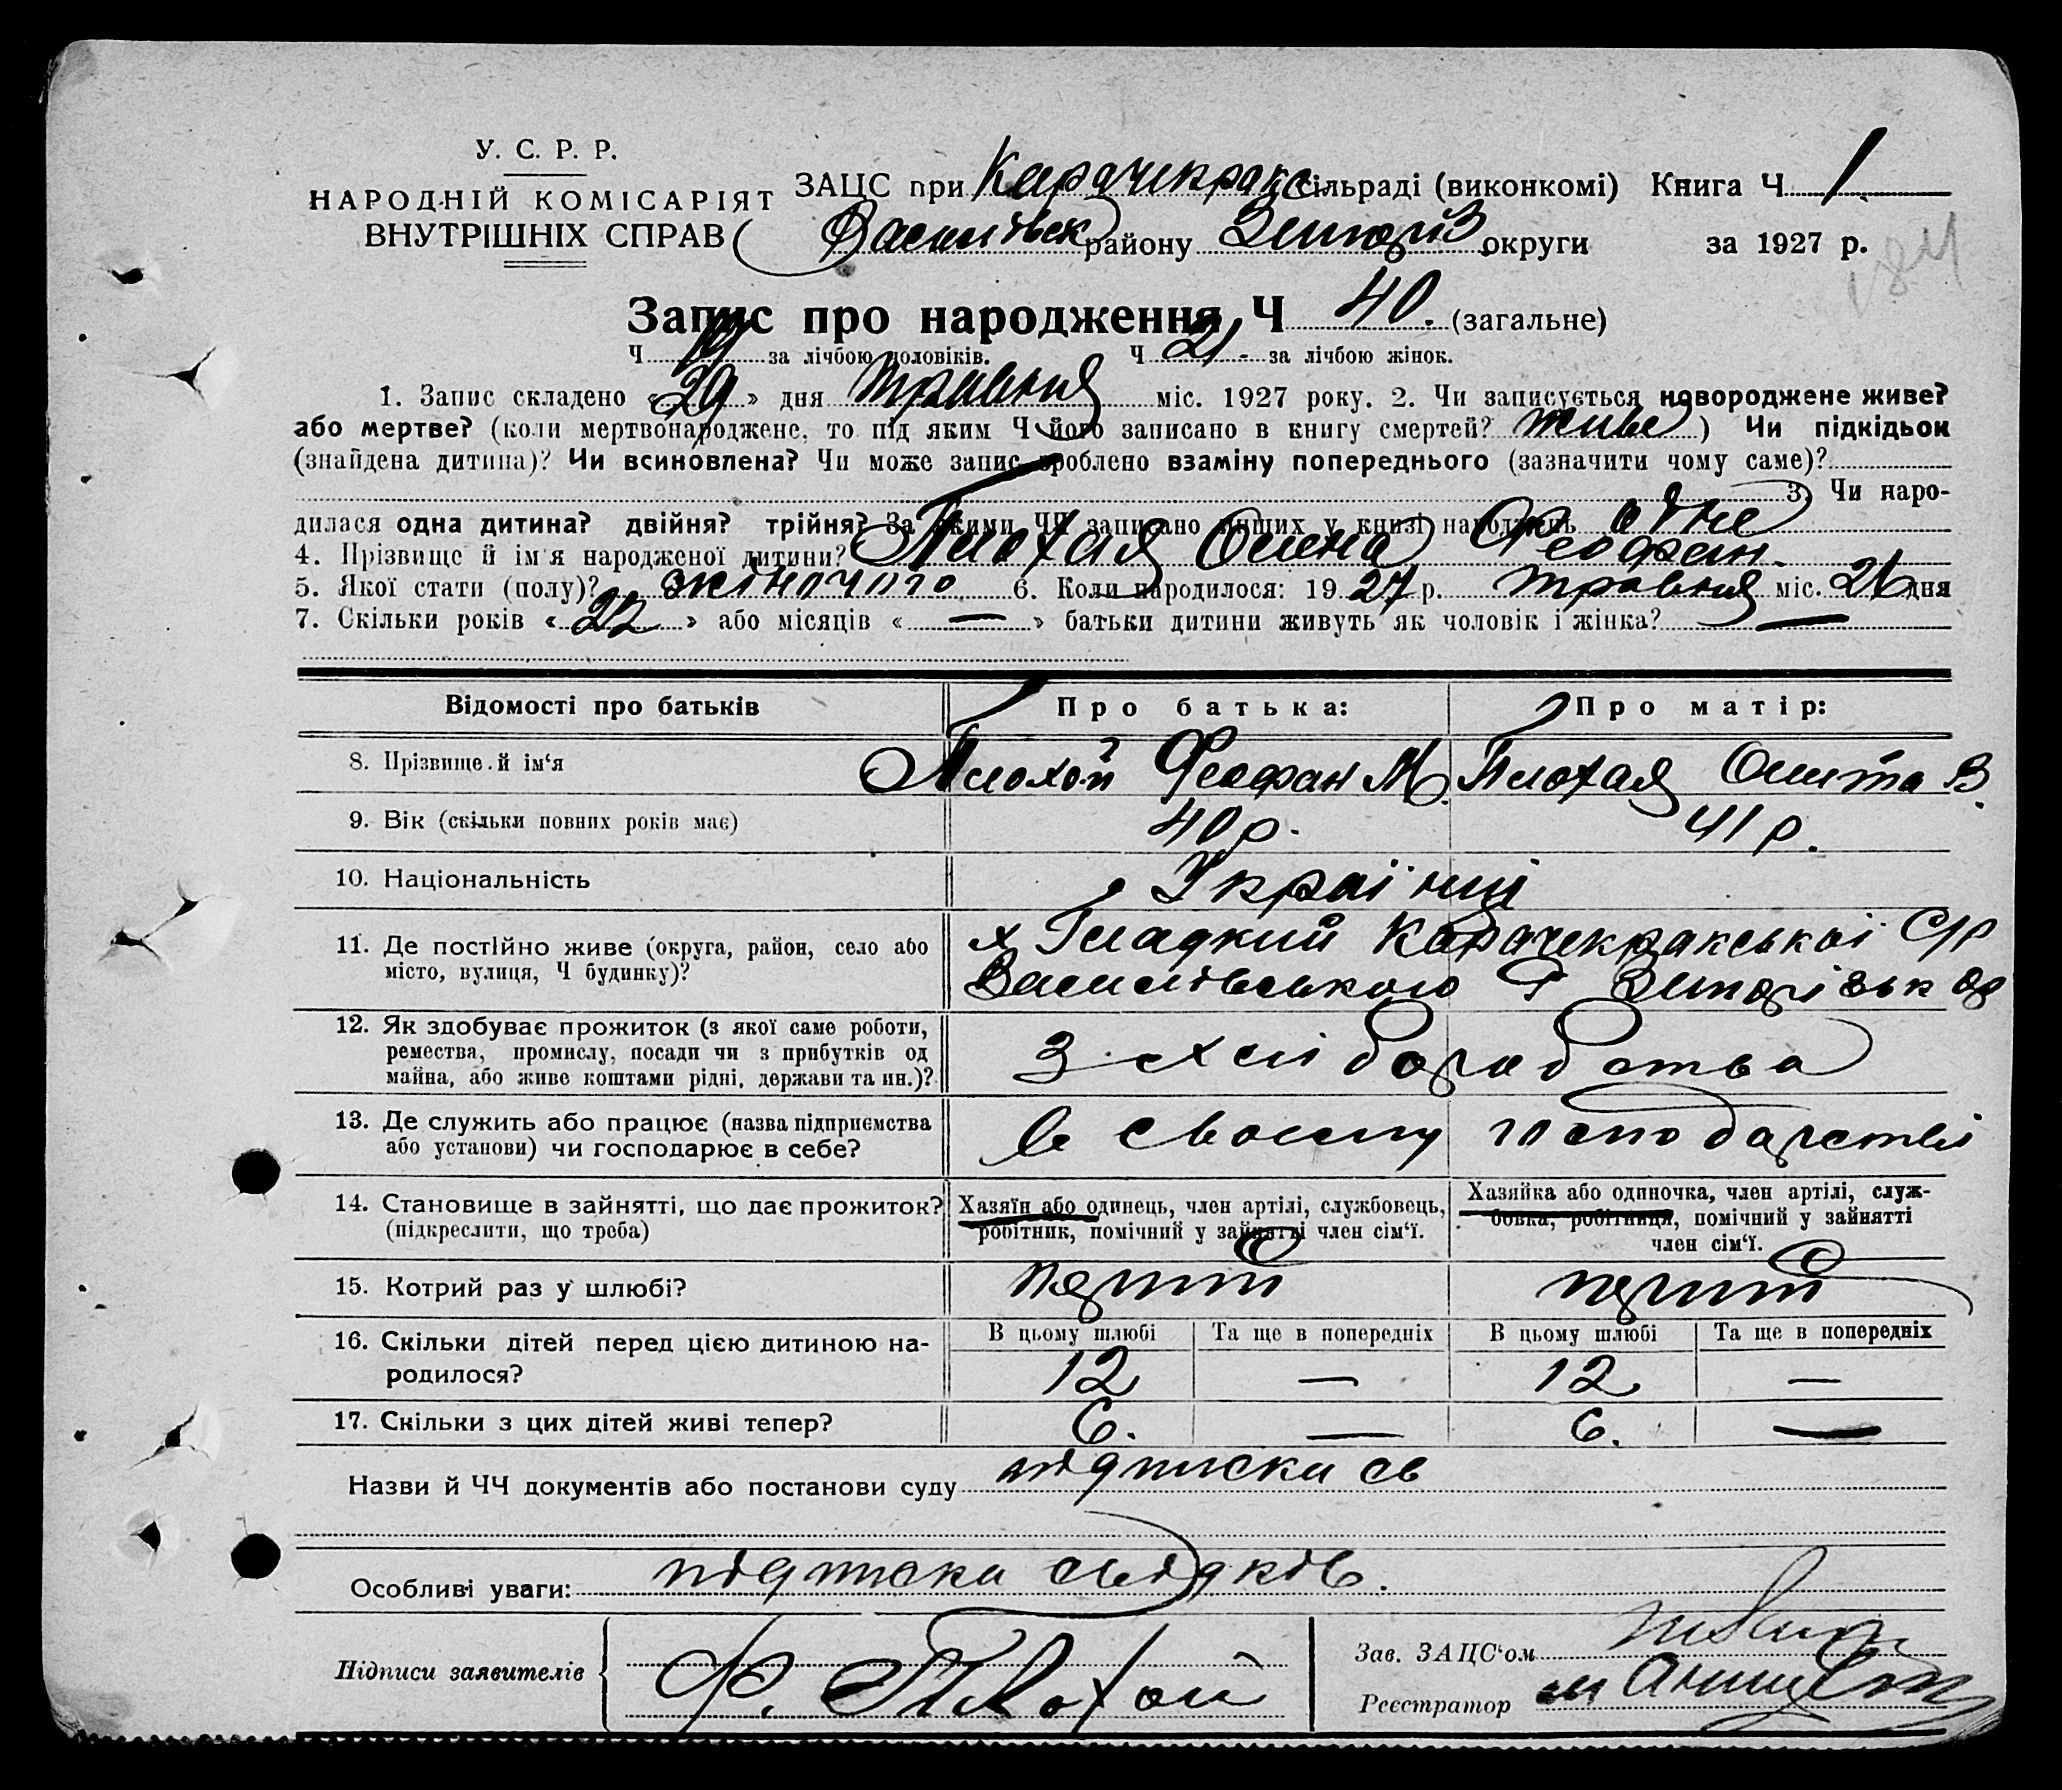 У. С. Р. Р.
НАРОДНІЙ КОМІСАРІЯТ
ВНУТРІШНІХ СПРАВ
ЗАЦС при Карачекракс. сільраді (виконкомі) Книга Ч 1.
Василівськ району Запоріз округи за 1927 р.
184
Запис про народження Ч 40. (загальне)
Ч 19 за лічбою чоловіків. Ч 21 за лічбою жінок.
1. Запис складено «29» дня травня міс. 1927 року. 2. Чи записується новороджене живе?
або мертве? (коли мертвонароджене, то під яким Ч його записано в книгу смертей? живе) Чи підкідьок
(знайдена дитина)? Чи всиновлена? Чи може запис зроблено взаміну попереднього (зазначити чому саме)?
3. Чи наро-
дилася одна дитина? двійня? трійня? За якими ЧЧ записано инших у книзі народжень одне
4. Прізвище й ім'я народженої дитини? Плохая Олена Феофан.
5. Якої стати (полу)? жіночого 6. Коли народилося: 1927 р. травня міс. 26 дня
7. Скільки років «22» або місяців «—» батьки дитини живуть як чоловік і жінка? —
Відомості про батьків Про батька: Про матір:
8. Прізвище й ім'я Плохой Феофан М. Плохая Олита В.
9. Вік (скільки повних років має) 40 р. 41 р.
10. Національність Українці
11. Де постійно живе (округа, район, село або х Гладкий Карачекракської С/р
місто, вулиця, Ч будинку)? Василівського Р Запорізьк ок
12. Як здобуває прожиток (з якої саме роботи,
ремества, промислу, посади чи з прибутків од З хліборобства
майна, або живе коштами рідні, держави та ин.)?
13. Де служить або працює (назва підприємства в своєму господарстві
або установи) чи господарює в себе?
14. Становище в зайнятті, що дає прожиток? Хазяїн або одинець, член артілі, службовець, Хазяйка або одиночка, член артілі, служ-
(підкреслити, що треба) робітник, помічний у зайнятті член сім'ї. бовка, робітниця, помічний у зайнятті
член сім'ї.
15. Котрий раз у шлюбі? перший перший
16. Скільки дітей перед цією дитиною на- В цьому шлюбі Та ще в попередніх В цьому шлюбі Та ще в попередніх
родилося? 12 — 12 —
17. Скільки з цих дітей живі тепер? 6. — 6. —
Назви й ЧЧ документів або постанови суду підписки св
Особливі уваги: підписка свідків.
Підписи заявителів Ф. Плохой
Зав. ЗАЦС'ом
Реєстратор